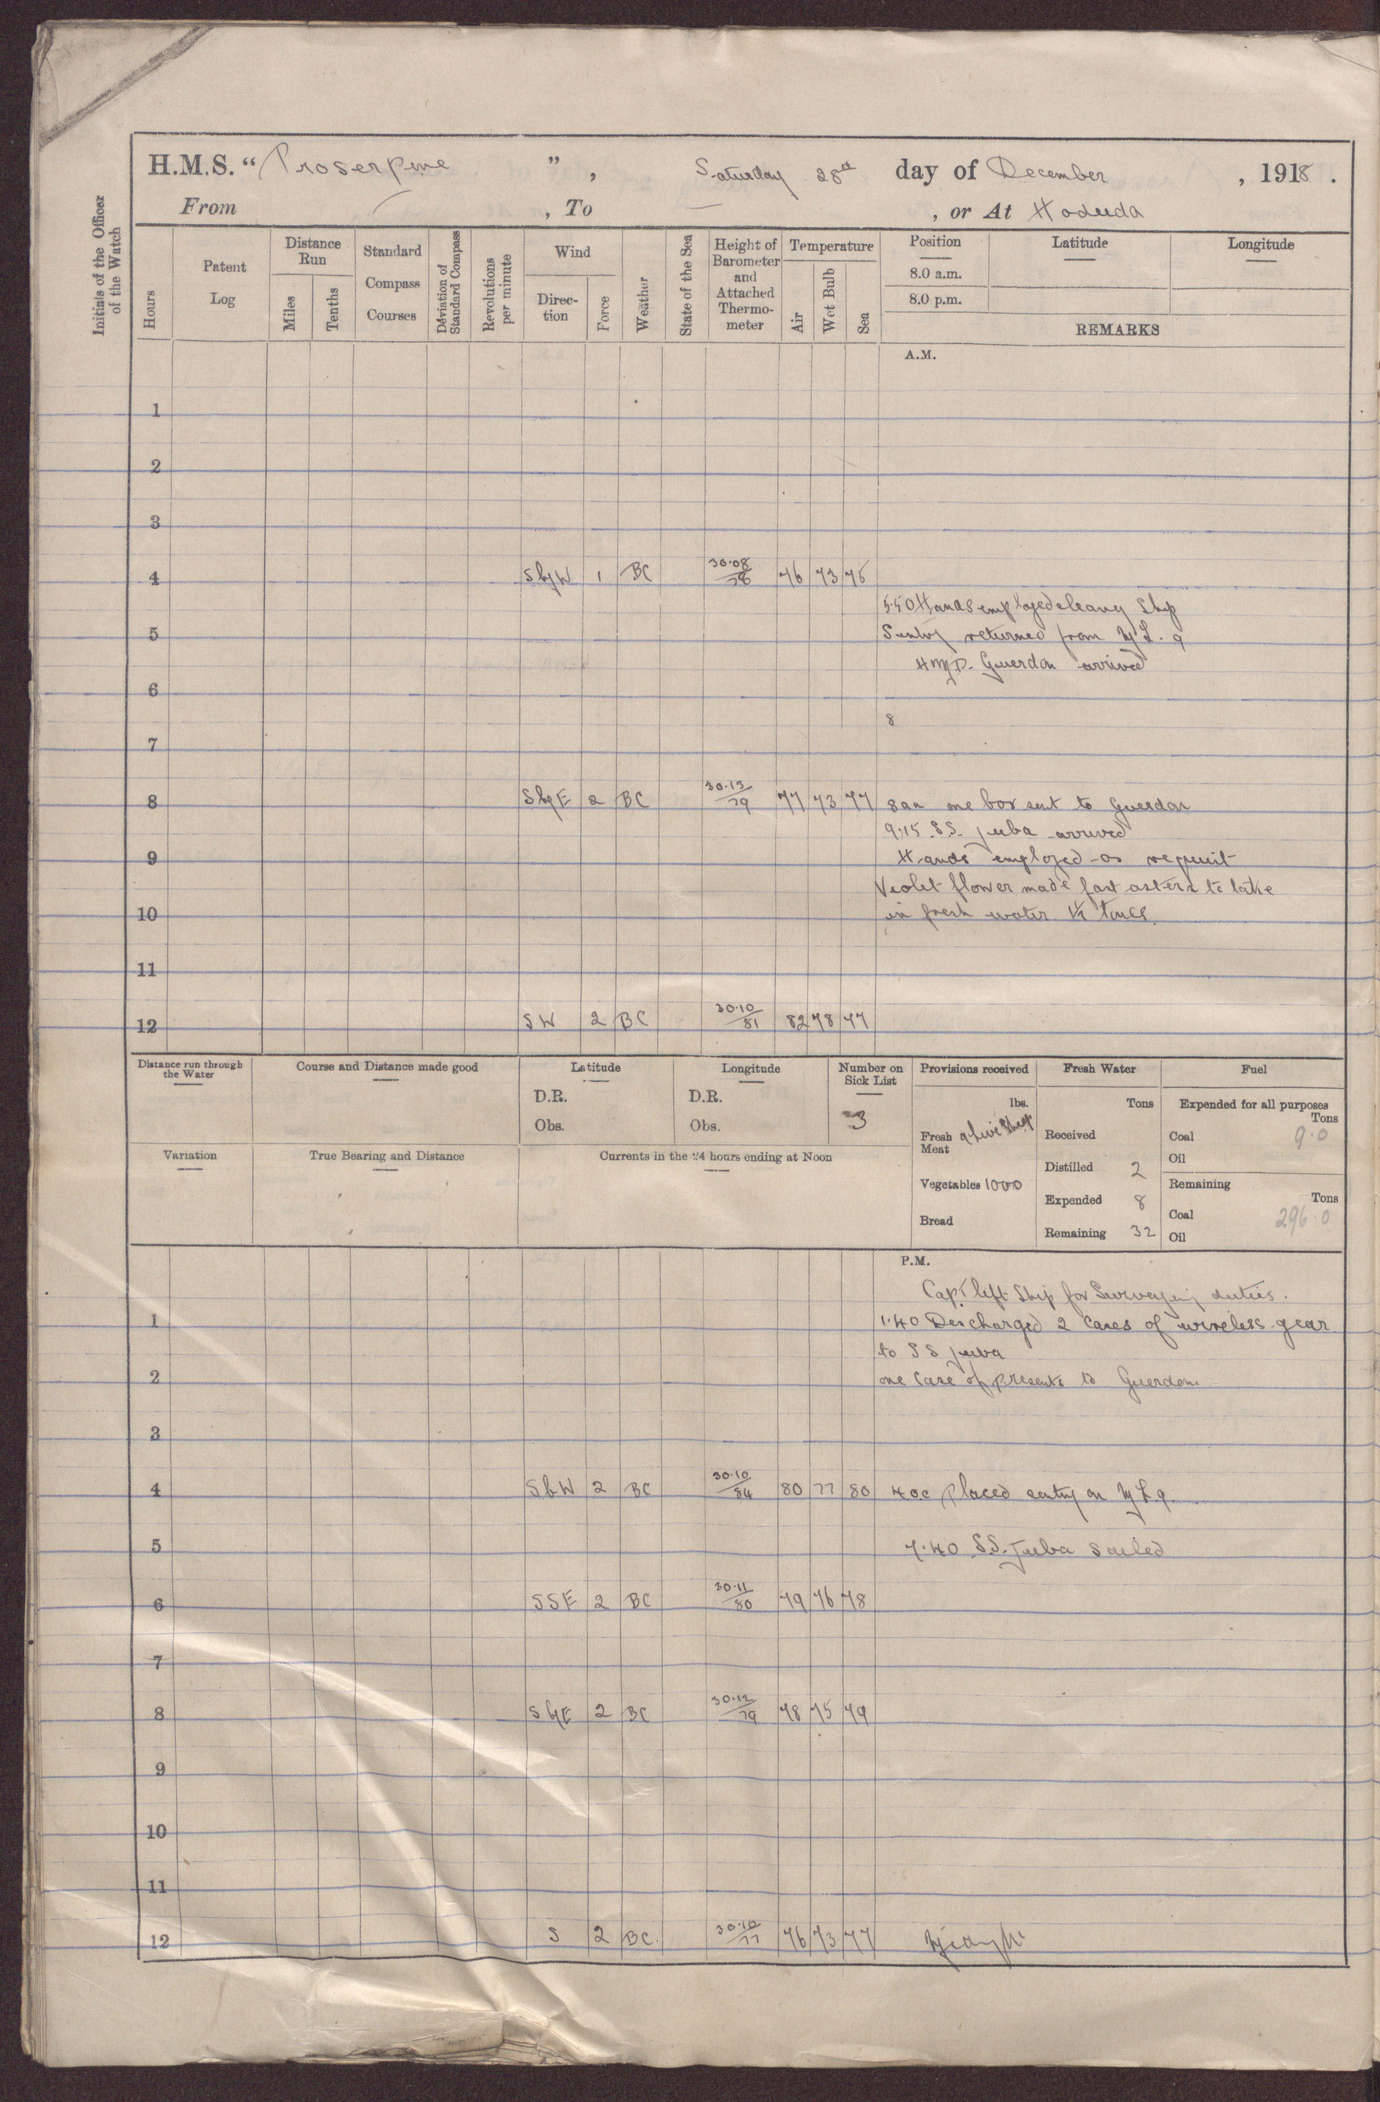 H.M.S. “Proserpine ”, Saturday 28th day of December , 1918 .
From — , To — , or At Hodeida
Initials of the Officer of the Watch
Hours Patent Log Distance Run Miles Tenths Standard Compass Courses Deviation of Standard Compass Revolutions per minute Wind Direc-tion Force Weather State of the Sea Height of Barometer and Attached Thermo-meter Temperature Air Wet Bulb Sea Position Latitude Longitude
8.0 a.m.
8.0 p.m.
REMARKS
A.M.
1
2
3
4 SbyW 1 BC 30.08/78 76 73 75
5.50 Hands employed cleang Ship
5 Sentry returned from ML. 9
HMD. Guerdon arrived
6
8
7
8 SbyE 2 BC 30.13/79 77 73 77 8am one box sent to Guerdon
9.15 S.S. Juba arrived
9 Hands employed as requist
Violet flower made fast astern to take
10 in fresh water
11
12 SW 2 BC 30.10/81 82 78 77
Distance run through the Water Course and Distance made good Latitude Longitude Number on Sick List Provisions received Fresh Water Fuel
D.R. D.R. lbs. Tons Expended for all purposes Tons
Obs. Obs. 3 Fresh Meat 9 Live Sheep Received Coal 9.0
Oil
Variation True Bearing and Distance Currents in the 24 hours ending at Noon Distilled 2
Vegetables 1000 Expended 8 Remaining Tons
Bread Remaining 32 Coal 296.0
Oil
P.M.
Capt left Ship for Surveying duties.
1 1.40 Discharged 2 Cases of wireless gear
to SS Juba
2 one Case of presents to Guerdon
3
4 SbW 2 BC 30.10/84 80 77 80 4.0 placed sentry on ML 9
5 7.40 S.S. Juba Sailed
6 SSE 2 BC 30.11/80 79 76 78
7
8 SbyE 2 BC 30.12/79 78 75 79
9
10
11
12 S 2 BC 30.10/77 76 73 77